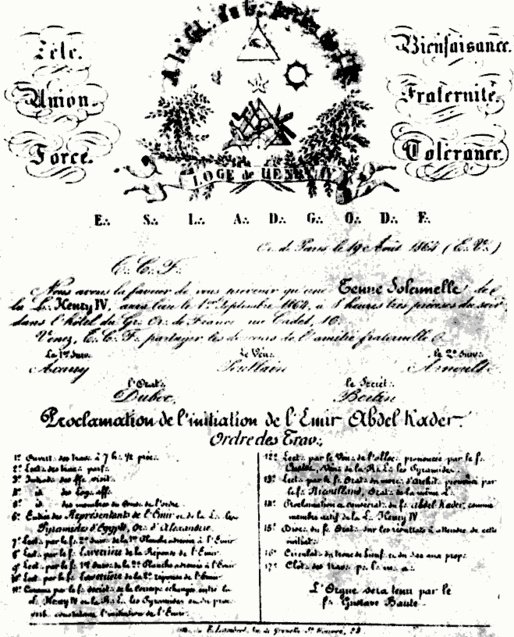 Zèle.
Union.
Force.
A la Gl. du
Bienfaisance.
Fraternité.
Tolérance.
LOGE de HENRY IV
E∴ S∴ L∴ A∴ D∴ G∴ O∴ D∴ F∴
Or. de Paris le 19 Août 1864 (E. V.)
C. C. F.
Nous avons la faveur de vous prévenir qu'une Tenue Solennelle de
la L. Henry IV, aura lieu le 1er Septembre 1864, à heures très précises du soir
dans l'hôtel du Gr. Or. de France rue Cadet, 16.
Venez, C. C. F. partager les de l'amitié fraternelle
Le 1er Surv. Le Vén. le 2e Surv.
Arnoult
l'Orat. le Secrét.
Duboc. Bertin
Proclamation de l'initiation de l'Emir Abdel Kader.
Ordre des Trav.
1º Ouvert. des trav. à 7 h. ½ préc.
2º Lect. des trav. parf.
3º Introd. des ff. visit.
4º id des Loges aff.
5º id des membres du Cons. de l'ordre
6º Entrée des Représentants de l'Emir et de la L. les
Pyramides d'Egypte, Or. d'Alexandrie.
7º Lect. par le f. 2e Surv. de la 1re Planche adressée à l'Emir
8º Lect. par le f. de la Réponse de l'Emir
9º Lect. par le f. 1er Surv. de la 2e Planche adressée à l'Emir
10º Lect. par le f. de la 2e réponse de l'Emir
11º Comm. par le f. Secrét. de la Corresp. échangée entre la
L. Henry IV et la R. L. les Pyramides et du proc.
verb. constatant l'initiation de l'Emir.
12º Lect. par le Vén. de l'alloc. prononcée par le f.
Vén. de la R. L. les Pyramides.
13º Lect. par le f. Orat. du morc. d'archit. prononcé par
le f. Orat. de la même L.
14º Proclamation du f. Abdel Kader, comme
membre actif de la L. Henry IV
15º Disc. du f. Orat. sur les résultats à attendre de cette
initiat.
16º Circulat. du tronc de bienf. et du sac aux prop.
17º Clôt. des trav.
L'Orgue sera tenu par le
f. Gustave